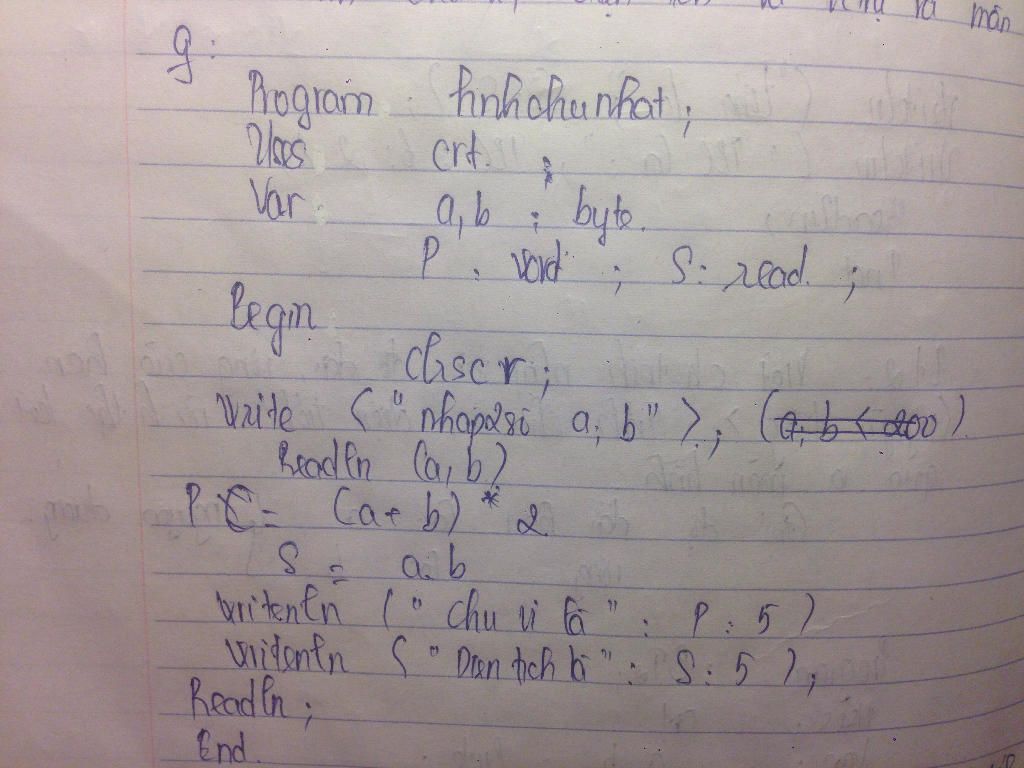 g:
Program hnhchunhat;
Uses crt. ;
Var a,b : byte.
P : Word ; S: read. ;
Begin
Clrscr;
Write ("nhap2si a, b"); (a, b < 200)
Readln (a,b)
P = (a+ b) * 2
S = a.b
Writenln (" Chu vi là " : P : 5 )
Writenln ( " Dien tich là " : S : 5 );
Readln ;
End.